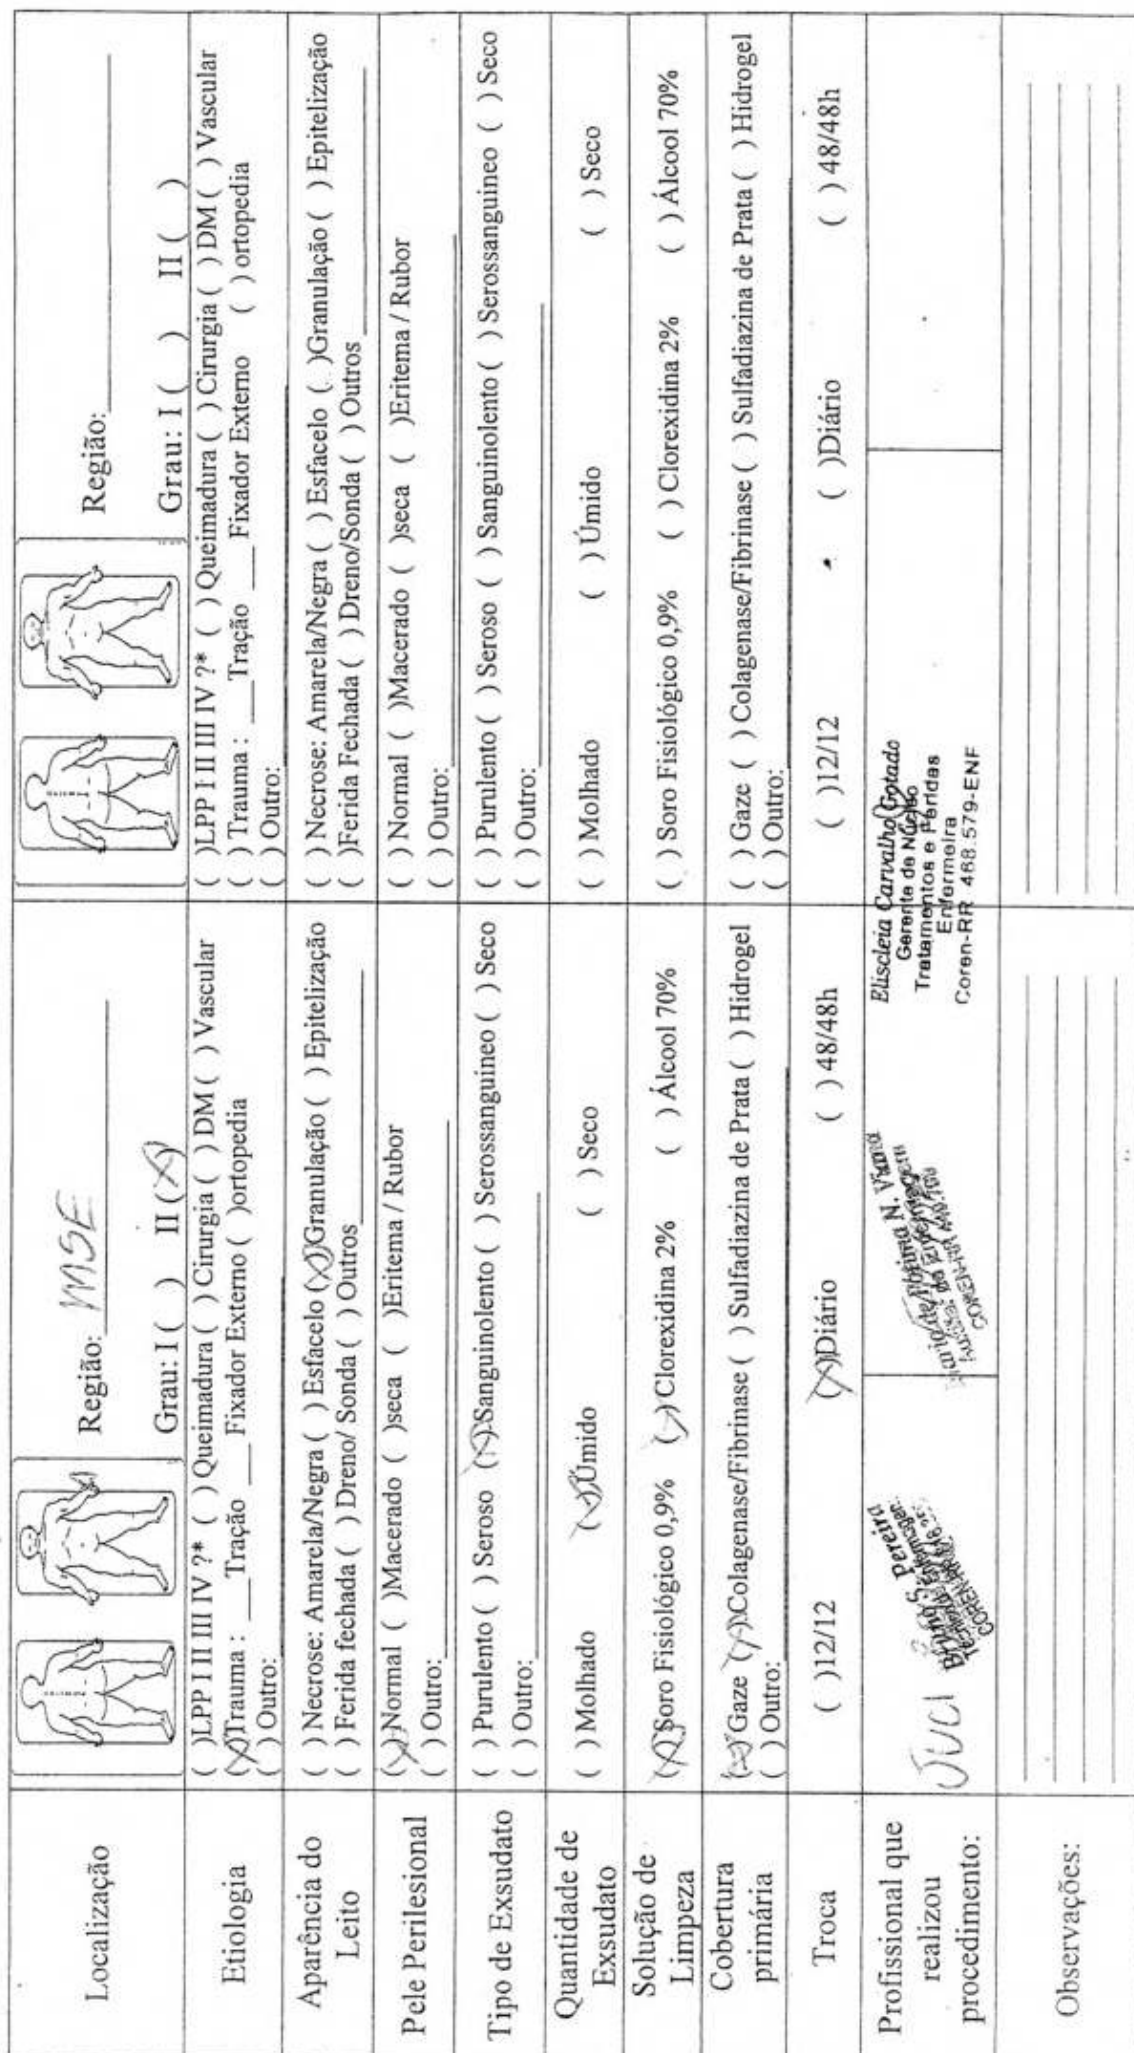 Localização
Região: MSE
Grau: I ( ) II (X)
Região:
Grau: I ( ) II ( )
Etiologia
( )LPP I II III IV ?* ( ) Queimadura ( ) Cirurgia ( ) DM ( ) Vascular
(X)Trauma : ___Tração ___Fixador Externo ( )ortopedia
( ) Outro:
( )LPP I II III IV ?* ( ) Queimadura ( ) Cirurgia ( ) DM ( ) Vascular
( ) Trauma : ___Tração ___Fixador Externo ( ) ortopedia
( ) Outro:
Aparência do
Leito
( ) Necrose: Amarela/Negra ( ) Esfacelo (X)Granulação ( ) Epitelização
( ) Ferida fechada ( ) Dreno/ Sonda ( ) Outros
( ) Necrose: Amarela/Negra ( ) Esfacelo ( )Granulação ( ) Epitelização
( )Ferida Fechada ( ) Dreno/Sonda ( ) Outros
Pele Perilesional
(X)Normal ( )Macerado ( )seca ( )Eritema / Rubor
( ) Outro:
( ) Normal ( )Macerado ( )seca ( )Eritema / Rubor
( ) Outro:
Tipo de Exsudato
( ) Purulento ( ) Seroso (X)Sanguinolento ( ) Serossanguineo ( ) Seco
( ) Outro:
( ) Purulento ( ) Seroso ( ) Sanguinolento ( ) Serossanguineo ( ) Seco
( ) Outro:
Quantidade de
Exsudato
( ) Molhado (X)Úmido ( ) Seco
( ) Molhado ( ) Úmido ( ) Seco
Solução de
Limpeza
(X)Soro Fisiológico 0,9% (X)Clorexidina 2% ( ) Álcool 70%
( ) Soro Fisiológico 0,9% ( ) Clorexidina 2% ( ) Álcool 70%
Cobertura
primária
(X)Gaze (X)Colagenase/Fibrinase ( ) Sulfadiazina de Prata ( ) Hidrogel
( ) Outro:
( ) Gaze ( ) Colagenase/Fibrinase ( ) Sulfadiazina de Prata ( ) Hidrogel
( ) Outro:
Troca
( )12/12 (X)Diário ( ) 48/48h
( )12/12 ( )Diário ( ) 48/48h
Profissional que
realizou
procedimento:
Juci
Bruno S. Pereira
N. Viana
Eliscleia Carvalho Gotado
Gerente de Núcleo
Tratamentos e Feridas
Enfermeira
Coren-RR 468.579-ENF
Observações: